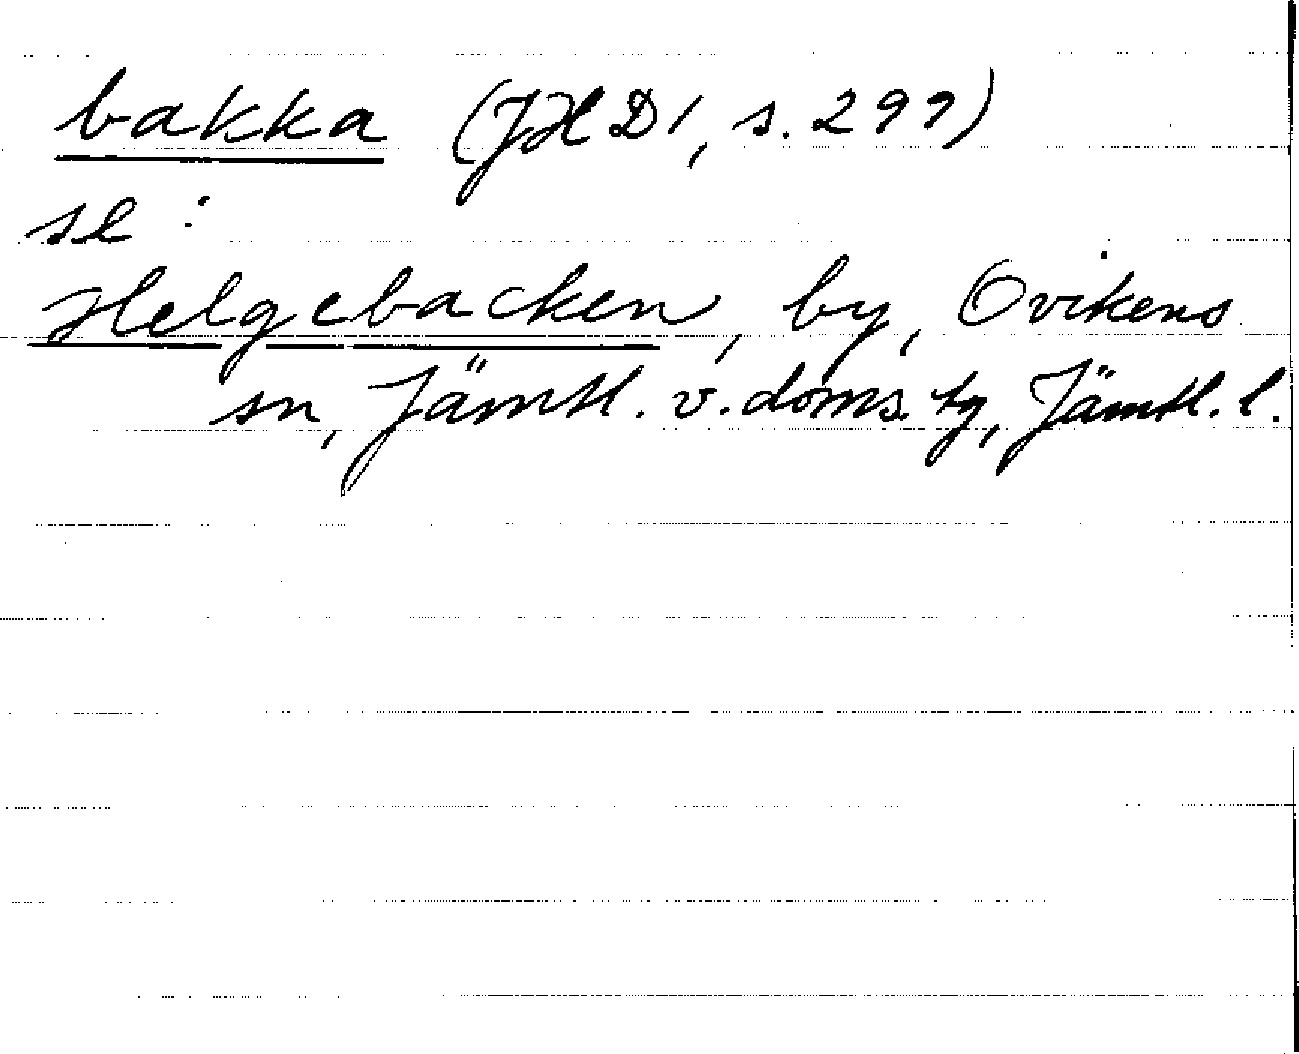 bakka (JHD1, s. 299)
se :
Helgebacken, by, Ovikens
sn, Jämtl. v. doms. tg, Jämtl. l.